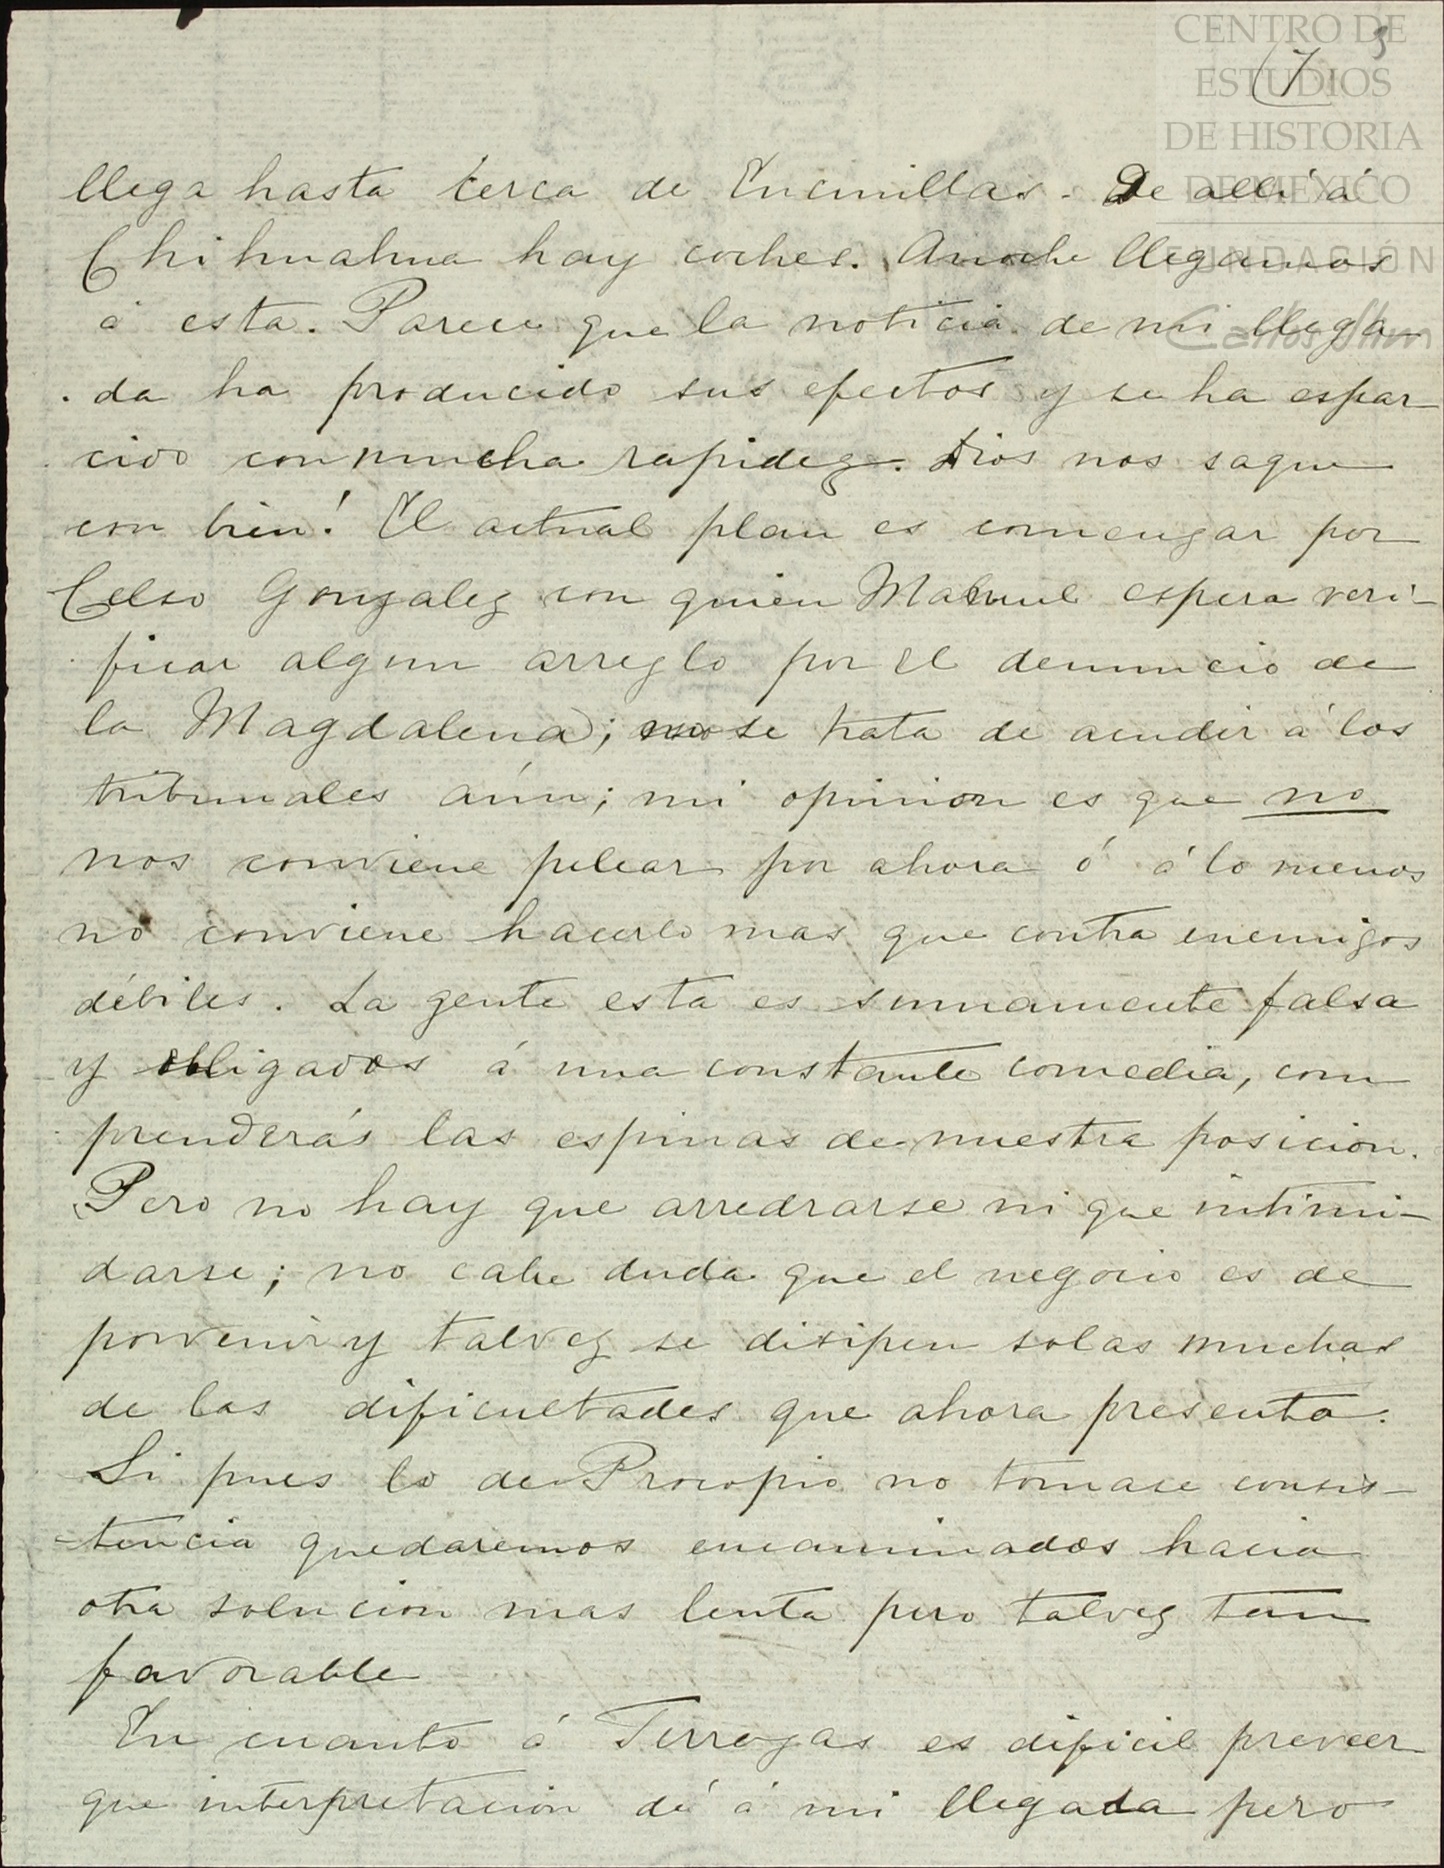 CENTRO DE
ESTUDIOS
DE HISTORIA
DE MÉXICO
FUNDACIÓN
Carlos Slim
(7
llega hasta cerca de Encinillas. De allí á
Chihuahua hay coches. Anoche llegamos
á esta. Parece que la noticia de mi llega-
da ha producido sus efectos y se ha espar-
cido con mucha rapidez. Dios nos saque
con bien! El actual plan es comenzar por
Celso Gonzalez con quien Manuel espera veri-
ficar algun arreglo por el denuncio de
la Magdalena; no se trata de acudir á los
tribunales aún; mi opinion es que no
nos conviene pelear por ahora ó á lo menos
no conviene hacerlo mas que contra enemigos
débiles. La gente esta es sumamente falsa
y obligados á una constante comedia, com
prenderás las espinas de nuestra posicion.
Pero no hay que arredrarse ni que intimi-
darse; no cabe duda que el negocio es de
porvenir y talvez se disipen solas muchas
de las dificultades que ahora presenta.
Si pues lo de Procopio no tomase consis-
tencia quedaremos encaminados hacia
otra solucion mas lenta pero talvez tan
favorable
En cuanto á Terrazas es dificil preveer
que interpretacion dé á mi llegada pero